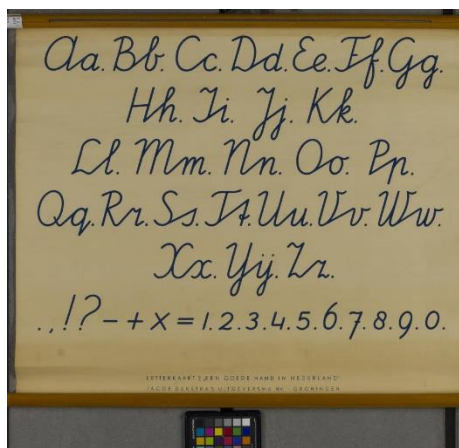 Aa. Bb. Cc. Dd. Ee. Ff. Gg.
Hh. Ii. Jj. Kk.
Ll. Mm. Nn. Oo. Pp.
Qq. Rr. Ss. Tt. Uu. Vv. Ww.
Xx. Yij. Zz.
. , ! ? - + x = 1. 2. 3. 4. 5. 6. 7. 8. 9. 0.
LETTERKAART 2 „EEN GOEDE HAND IN NEDERLAND"
JACOB DIJKSTRA'S UITGEVERSMIJ NV - GRONINGEN